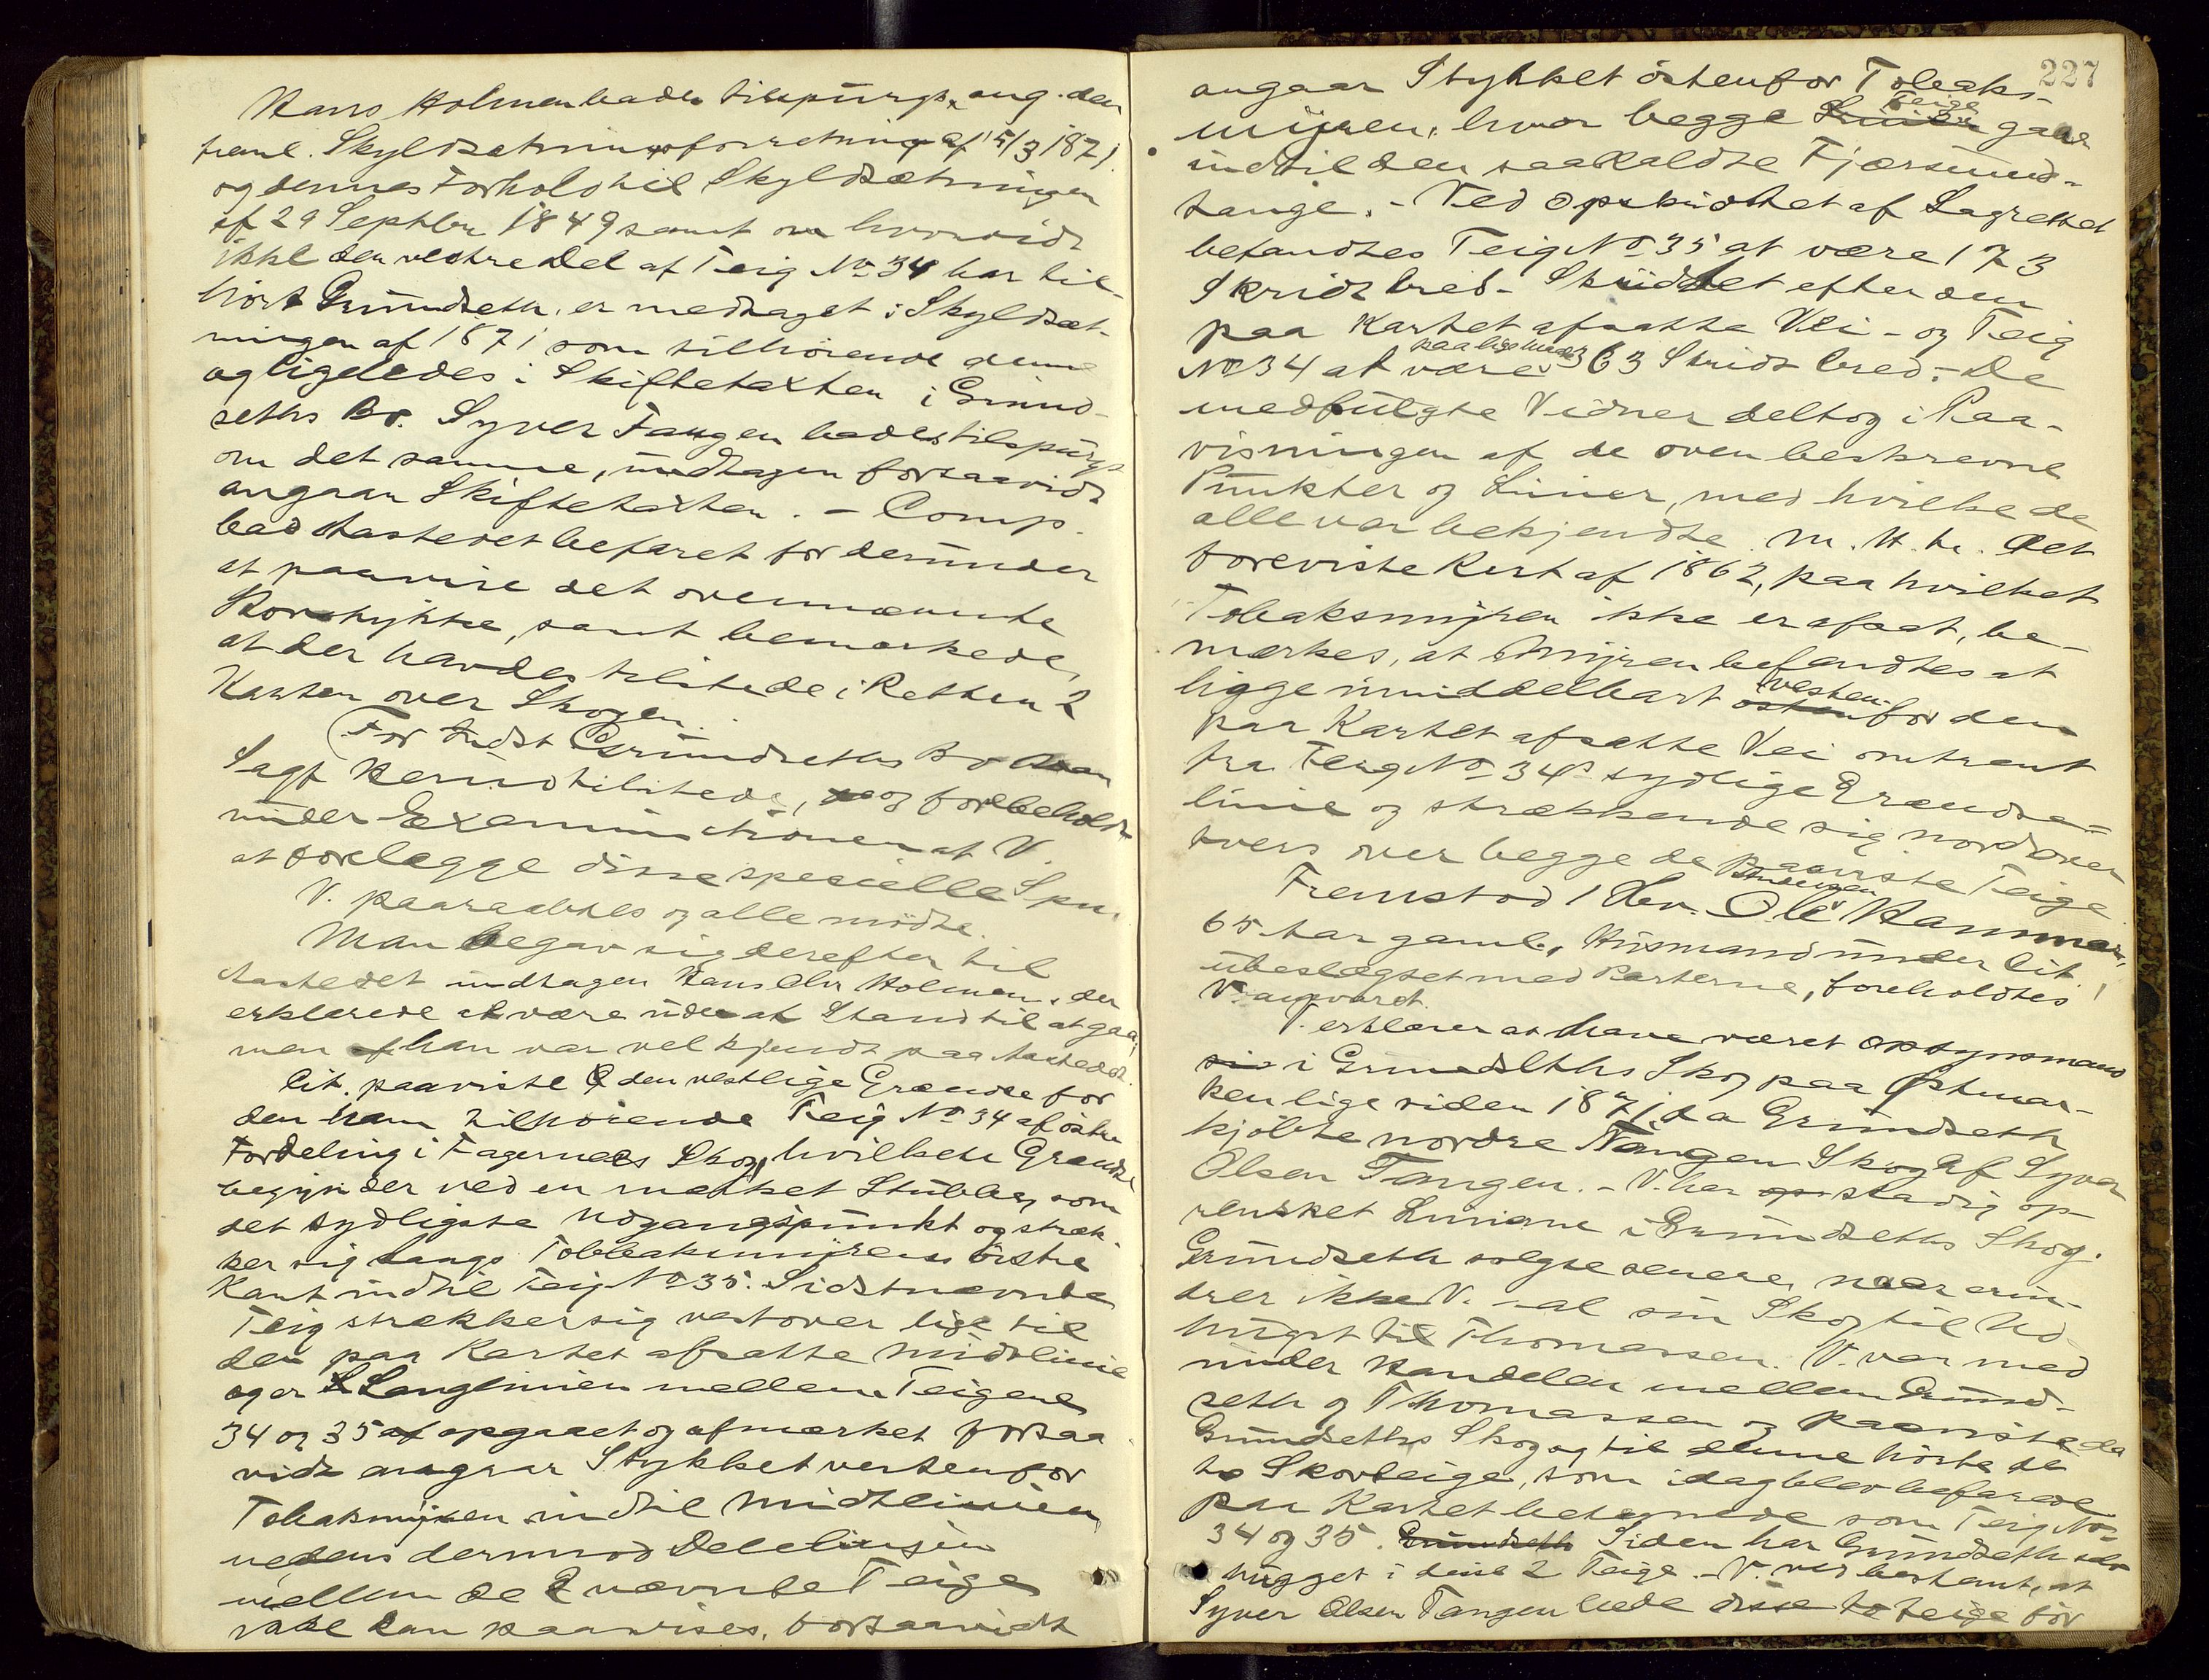 Hans Holmen bades tilspurgt ang. den
freml. Skyldsætningsforretning af 15/3 1871
og dennes Forhold til Skyldsætningen
af 29 Septbr 1849 samt om hvorvidt
ikke den vestre Del af Teig No 34 har til-
hørt Grundseth, er medtaget i Skyldsæt-
ningen af 1871 som tilhørende denne
og ligeledes i Skiftetaxten i Grund-
seths Bo. Syver Tangen bades tilspurgt
om det samme, undtagen forsaavidt
angaar Skiftetaxten. - Comp.
bad Aastedet befaret for derunder
at paavise det ovennævnte
Skovstykke, samt bemærkede,
at der havdes tilstede i Retten 2
Karter over Skogen.
For Indst. Grundseths Bo
Sagf. tilstede, og forbeholdt
under Examinationen af V.
at forelægge disse specielle Spm.
V. paaraabtes og alle mødte.
Man begav sig derefter til
Aastedet undtagen Hans Holmen, der
erklærede at være ude af Stand til at gaa,
men han var vel kjendt paa Aastedet.
Cit. paaviste den vestlige Grændse for
den ham tilhørende Teig No 34 af østre
Fordeling i Fagernes Skog, hvilken Grændse
begynder ved en mærket Stubbe, som
det sydligste Udgangspunkt og stræk-
ker sig langs Tobbaksmyrens østre
Kant indtil Teig No 35. Sidstnævnte
Teig strækker sig vestover lige til
den paa Kartet afsatte Midtlinie
og er Langlinien mellem Teigene
34 og 35 opgaaet og afmærket forsaa
vidt angaar Stykket vestenfor
Tobaksmyren indtil Midtlinien,
medens derimod Delelinjen
mellem de 2 nævnte Teige
ikke kan paavises, forsaavidt
227
angaar Stykket østenfor Tobaks-
myren, hvor begge Teige gaar
indtil den saakaldte Fjærsund-
tange. - Ved Opskridtet af Lagrettet
befandtes Teig No 35 at være 173
Skridt bred - Skridtet efter den
paa Kartet afsatte Vei - og Teig
No 34 at være paa lige Maade 363 Skridt bred. - De
medfulgte Vidner deltog i Paa-
visningen af de ovenbeskrevne
Punkter og Linier, med hvilke de
alle var bekjendte. M. H. t. det
foreviste Kart af 1862, paa hvilket
Tobaksmyren ikke er afsat, be-
mærkes, at Myren befandtes at
ligge umiddelbart vestenfor den
paa Kartet afsatte Vei omtrent
fra Teig No 34s sydlige Grændse-
linie og strækkende sig nordover
tvers over begge de paaviste Teige
Fremstod 1 Vdn. Ole Andersen Hammer,
65 Aar gaml., Husmand under Cit.
ubeslægtet med Parterne, foreholdtes
V.ansvaret.
V. erklærer at have været Opsynsmand
i Grundseths Skog paa Østmar-
ken lige siden 1871, da Grundseth
kjøbte nordre Tangen Skog af Syver
Olsen Tangen. - V. har stadig op-
rensket Linierne i Grundseths Skog.
Grundseth solgte senere, naar erin-
drer ikke V. - al sin Skog til Ud-
hugst til Thomassen. V. var med
under Handelen mellem Grund-
seth og Thomassen og paaviste da
Grundseths Skog og til denne hørte de
to Skovteige, som idag blev befarede
paa Kartet betegnede som Teig No
34 og 35. Siden har Grundseth
hugget i disse 2 Teige. - V. ved bestemt, at
Syver Olsen Tangen eiede disse to Teige før